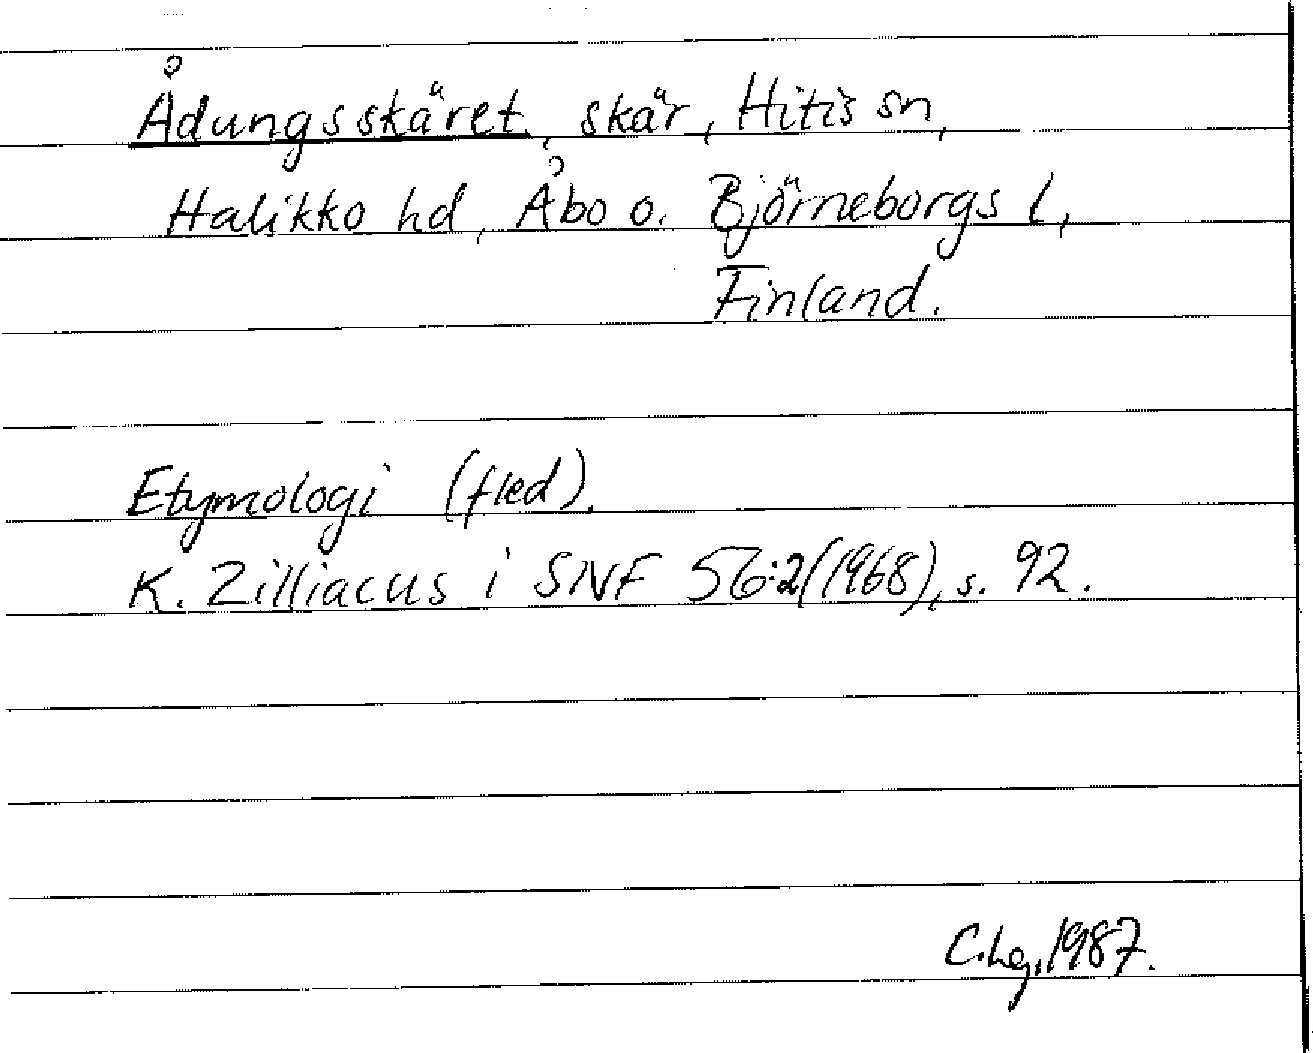 Ådungsskäret, skär, Hitis sn,
Halikko hd, Åbo o. Björneborgs l,
Finland.
Etymologi (fled).
K. Zilliacus i SNF 56:2(1968), s. 92.
C.Lg.1987.